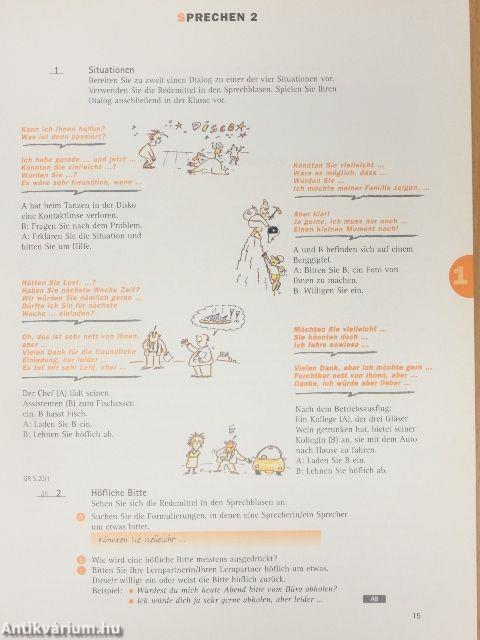 SPRECHEN 2
1 Situationen
Bereiten Sie zu zweit einen Dialog zu einer der vier Situationen vor.
Verwenden Sie die Redemittel in den Sprechblasen. Spielen Sie Ihren
Dialog anschließend in der Klasse vor.
Kann ich Ihnen helfen?
Was ist denn passiert?
DISCO
Ich habe gerade ... und jetzt ...
Könnten Sie vielleicht ...?
Würden Sie ...?
Es wäre sehr freundlich, wenn ...
A hat beim Tanzen in der Disko
eine Kontaktlinse verloren.
B: Fragen Sie nach dem Problem.
A: Erklären Sie die Situation und
bitten Sie um Hilfe.
Könnten Sie vielleicht ...
Wäre es möglich, dass ...
Würden Sie ...
Ich möchte meiner Familie zeigen, ...
Aber klar!
Ja gerne, ich muss nur noch ...
Einen kleinen Moment noch!
A und B befinden sich auf einem
Berggipfel.
A: Bitten Sie B, ein Foto von
Ihnen zu machen.
B: Willigen Sie ein.
1
Hätten Sie Lust, ...?
Haben Sie nächste Woche Zeit?
Wir würden Sie nämlich gerne ...
Dürfte ich Sie für nächste
Woche ... einladen?
Oh, das ist sehr nett von Ihnen,
aber ...
Vielen Dank für die freundliche
Einladung, nur leider ...
Es tut mir sehr Leid, aber ...
Der Chef (A) lädt seinen
Assistenten (B) zum Fischessen
ein. B hasst Fisch.
A: Laden Sie B ein.
B: Lehnen Sie höflich ab.
Möchten Sie vielleicht ...
Sie könnten doch ...
Ich fahre sowieso ...
Vielen Dank, aber ich möchte gern ...
Furchtbar nett von Ihnen, aber ...
Danke, ich würde aber lieber ...
Nach dem Betriebsausflug:
Ein Kollege (A), der drei Gläser
Wein getrunken hat, bietet seiner
Kollegin (B) an, sie mit dem Auto
nach Hause zu fahren.
A: Laden Sie B ein.
B: Lehnen Sie höflich ab.
GR S. 20/1
GR 2 Höfliche Bitte
Sehen Sie sich die Redemittel in den Sprechblasen an.
a Suchen Sie die Formulierungen, in denen eine Sprecherin/ein Sprecher
um etwas bittet.
Könnten Sie vielleicht ...
b Wie wird eine höfliche Bitte meistens ausgedrückt?
c Bitten Sie Ihre Lernpartnerin/Ihren Lernpartner höflich um etwas.
Diese/r willigt ein oder weist die Bitte höflich zurück.
Beispiel: Würdest du mich heute Abend bitte vom Büro abholen?
Ich würde dich ja sehr gerne abholen, aber leider ...
AB
15
Antikvárium.hu